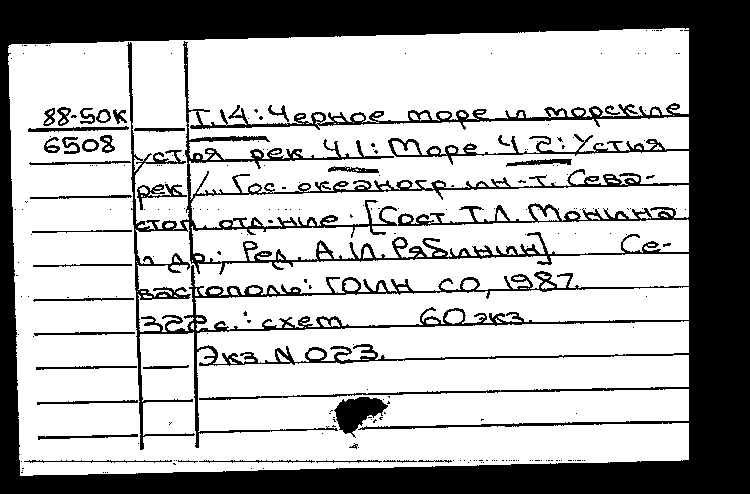 88-50к Т.14: Черное море и морские
6508 устья рек. Ч.1: Море. Ч.2: Устья
рек /... Гос. океаногр. ин-т. Сева-
стоп. отд-ние; [Сост. Т.Л. Монина
и др.; Ред. А.И. Рябинин]. Се-
вастополь: ГОИН СО, 1987.
322 с.: схем. 60 экз.
Экз. N 023.